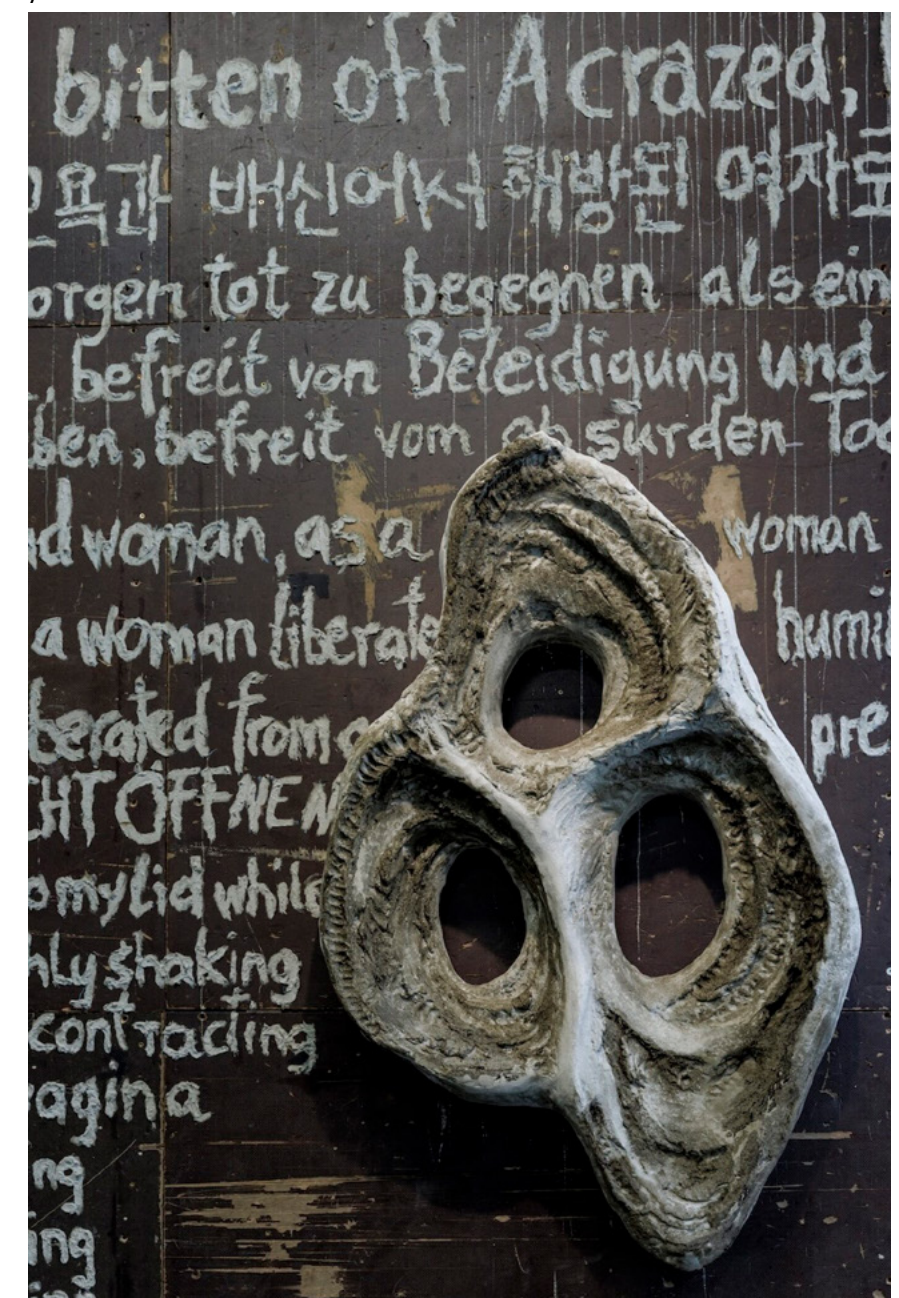 bitten off A crazed,
모욕과 배신에서 해방된 여자로
orgen tot zu begegnen als ein
befreit von Beleidigung und
ben, befreit vom absurden Tod
d woman, as a woman
a woman liberate humi
berated from a pre
CHT ÖFFNEN
o my lid while
hly shaking
contracting
agina
ng
ing